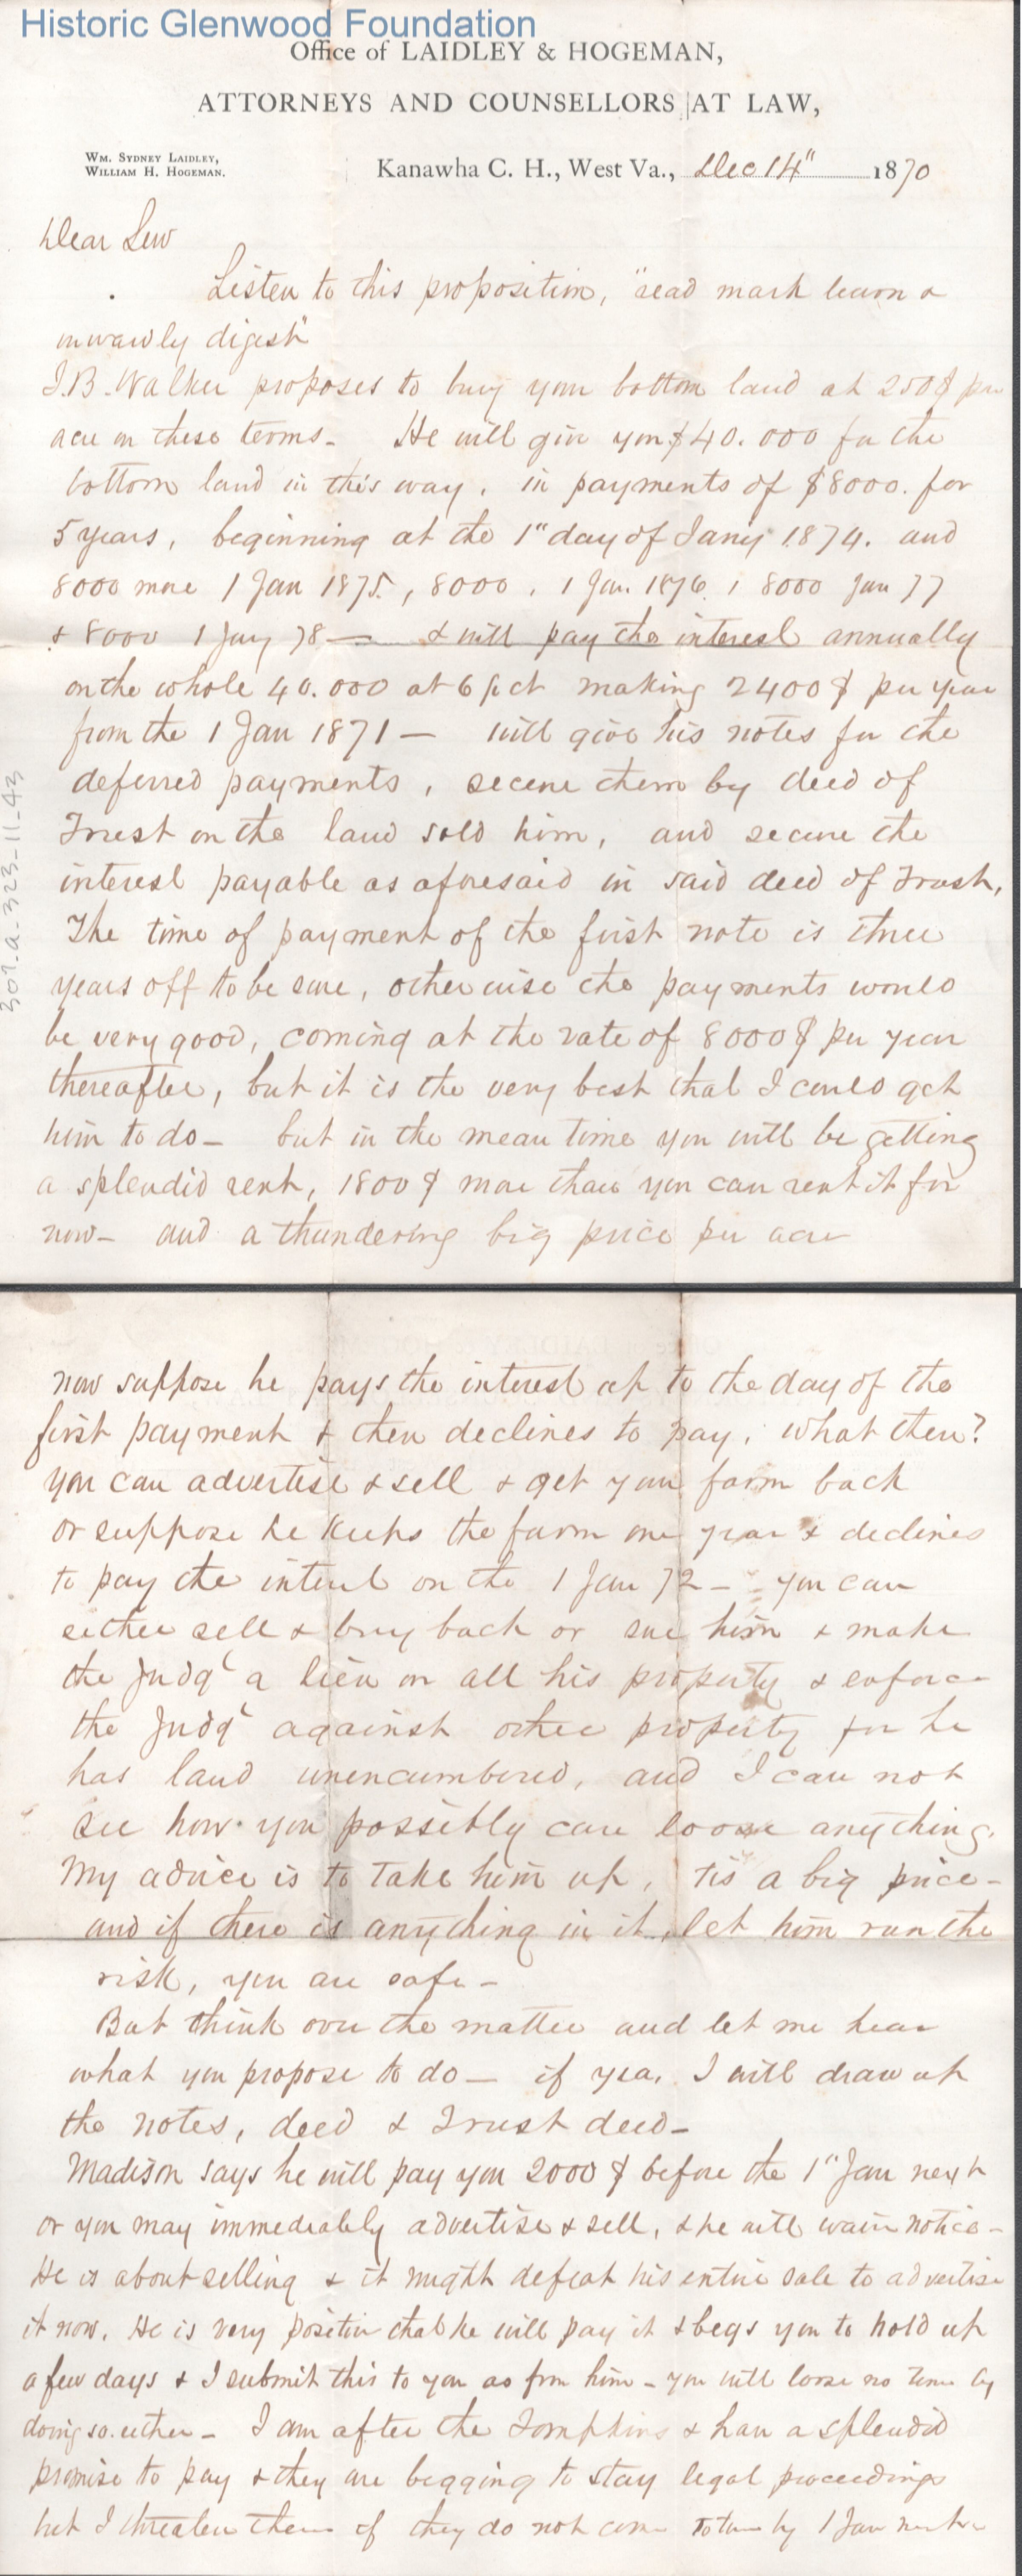 Historic Glenwood Foundation
Office of LAIDLEY & HOGEMAN,
ATTORNEYS AND COUNSELLORS AT LAW,
WM. SYDNEY LAIDLEY,
WILLIAM H. HOGEMAN.
Kanawha C. H., West Va., Dec 14" 1870
Dear Lew
Listen to this proposition, "read mark learn &
inwardly digest"
J.B. Walker proposes to buy your bottom land at 250$ per
acre on these terms - He will give you $40.000 for the
bottom land in this way, in payments of $8000. for
5 years, beginning at the 1" day of Jany 1874. and
8000 more 1 Jan 1875, 8000, 1 Jan. 1876, 8000 Jan 77
& 8000 1 Jany 78 — & will pay the interest annually
on the whole 40.000 at 6 pct making 2400$ per year
from the 1 Jan 1871 — will give his notes for the
deferred payments, secure them by deed of
Trust on the land sold him, and secure the
interest payable as aforesaid in said deed of Trust,
The time of payment of the first note is three
years off to be sure, otherwise the payments would
be very good, coming at the rate of 8000$ per year
thereafter, but it is the very best that I could get
him to do - but in the mean time you will be getting
a splendid rent, 1800$ more than you can rent it for
now - and a thundering big price per acre
301-a-323-11-43
now suppose he pays the interest up to the day of the
first payment & then declines to pay, what then?
you can advertise & sell & get your farm back
or suppose he keeps the farm one year & declines
to pay the interest on the 1 Jan 72 - you can
either sell & buy back or sue him & make
the Judgt a lien on all his property & enforce
the Judgt against other property for he
has land unencumbered, and I can not
see how you possibly can loose anything.
My advice is to take him up, tis a big price -
and if there is anything in it, let him run the
risk, you are safe -
But think over the matter and let me hear
what you propose to do - if yea, I will draw up
the notes, deed & Trust deed -
Madison says he will pay you 2000$ before the 1" Jan next
or you may immediately advertise & sell, & he will waive notice -
He is about selling & it might defeat his entire sale to advertise
it now. He is very positive that he will pay it & begs you to hold up
a few days & I submit this to you as from him - you will loose no time by
doing so either - I am after the Tompkins & have a splendid
promise to pay & they are begging to stay legal proceedings
but I threaten them if they do not come to time by 1 Jan